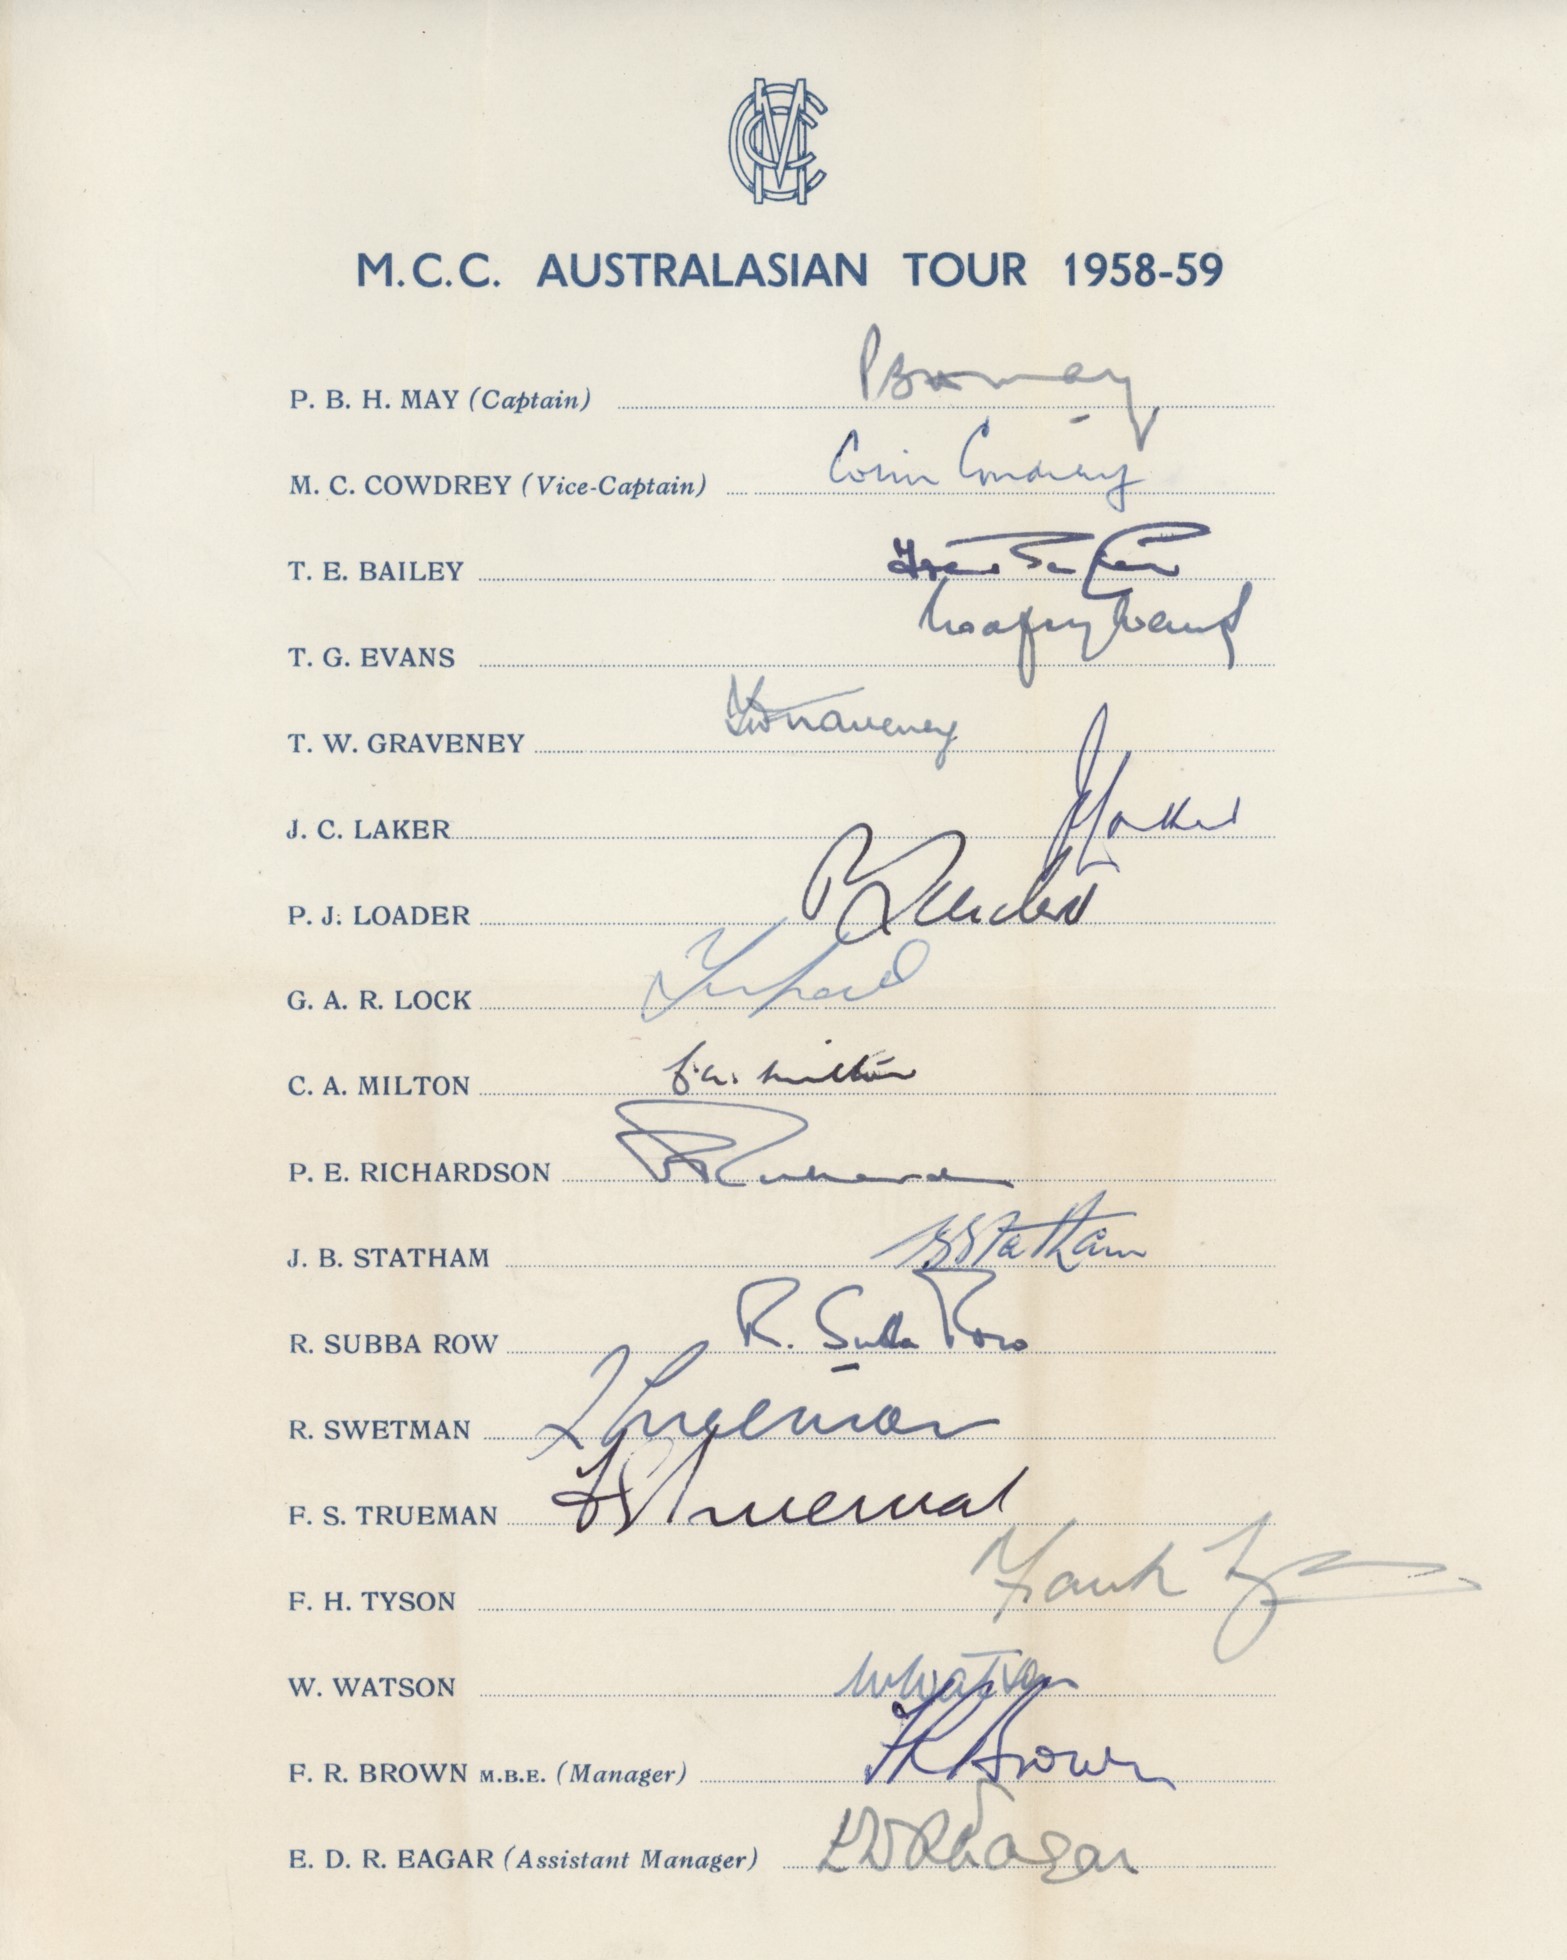 MCC
M.C.C. AUSTRALASIAN TOUR 1958-59
P. B. H. MAY (Captain) PBHMay
M. C. COWDREY (Vice-Captain) Colin Cowdrey
T. E. BAILEY
T. G. EVANS Godfrey Evans
T. W. GRAVENEY TWGraveney
J. C. LAKER
P. J. LOADER
G. A. R. LOCK
C. A. MILTON C.A. Milton
P. E. RICHARDSON
J. B. STATHAM JBStatham
R. SUBBA ROW R. Subba Row
R. SWETMAN
F. S. TRUEMAN FSTrueman
F. H. TYSON Frank
W. WATSON WWatson
F. R. BROWN M.B.E. (Manager) FRBrown
E. D. R. EAGAR (Assistant Manager) EDREagar